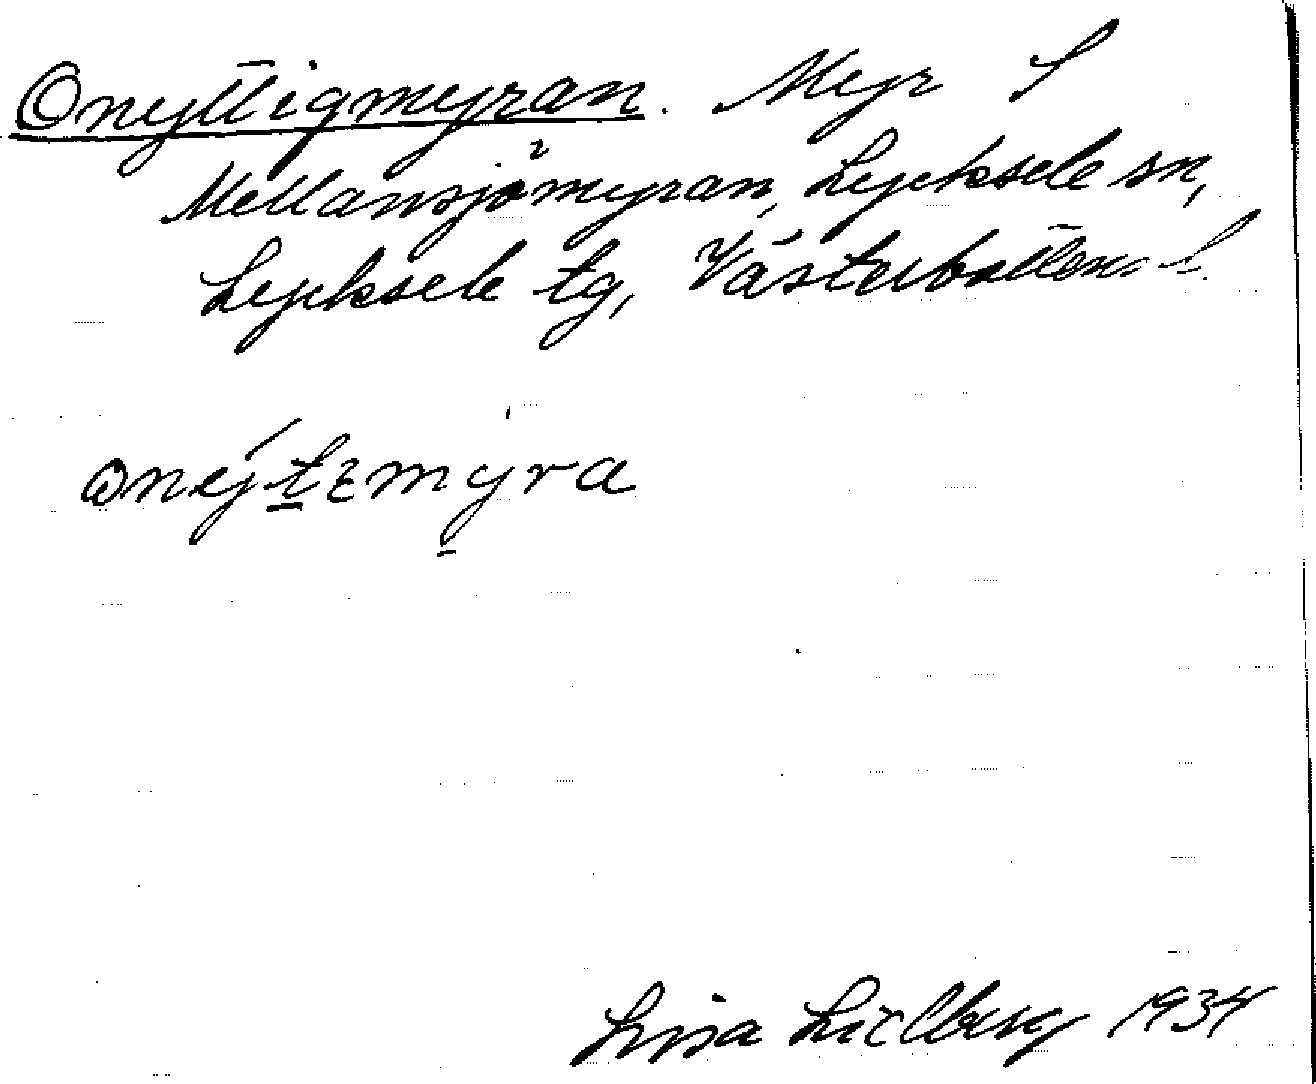 Onyttigmyran. Myr S
Mellansjömyran, Lycksele sn,
Lycksele tg, Västerbottens l.
onýtɛmyra
Lisa Lidberg 1934